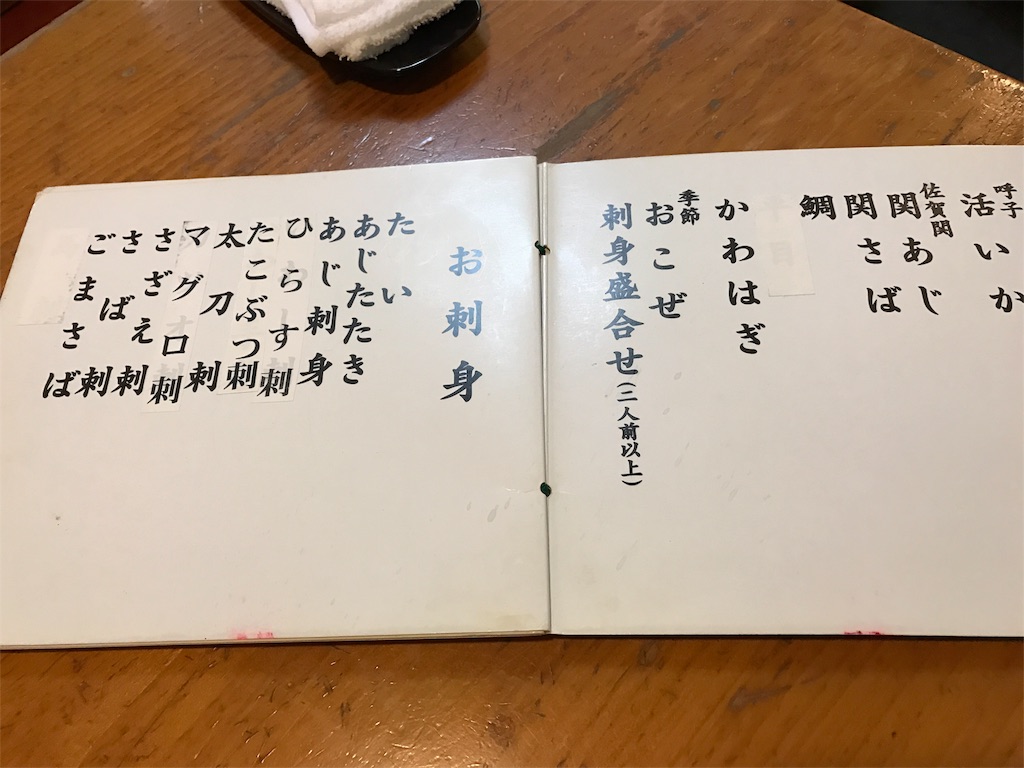 呼子
活いか
佐賀関
関あじ
関さば
鯛
かわはぎ
季節
おこぜ
刺身盛合せ(二人前以上)
お刺身
たい
あじたたき
あじ刺身
ひらす刺
たこぶつ刺
太刀刺
マグロ刺
さざえ刺
さば刺
ごまさば